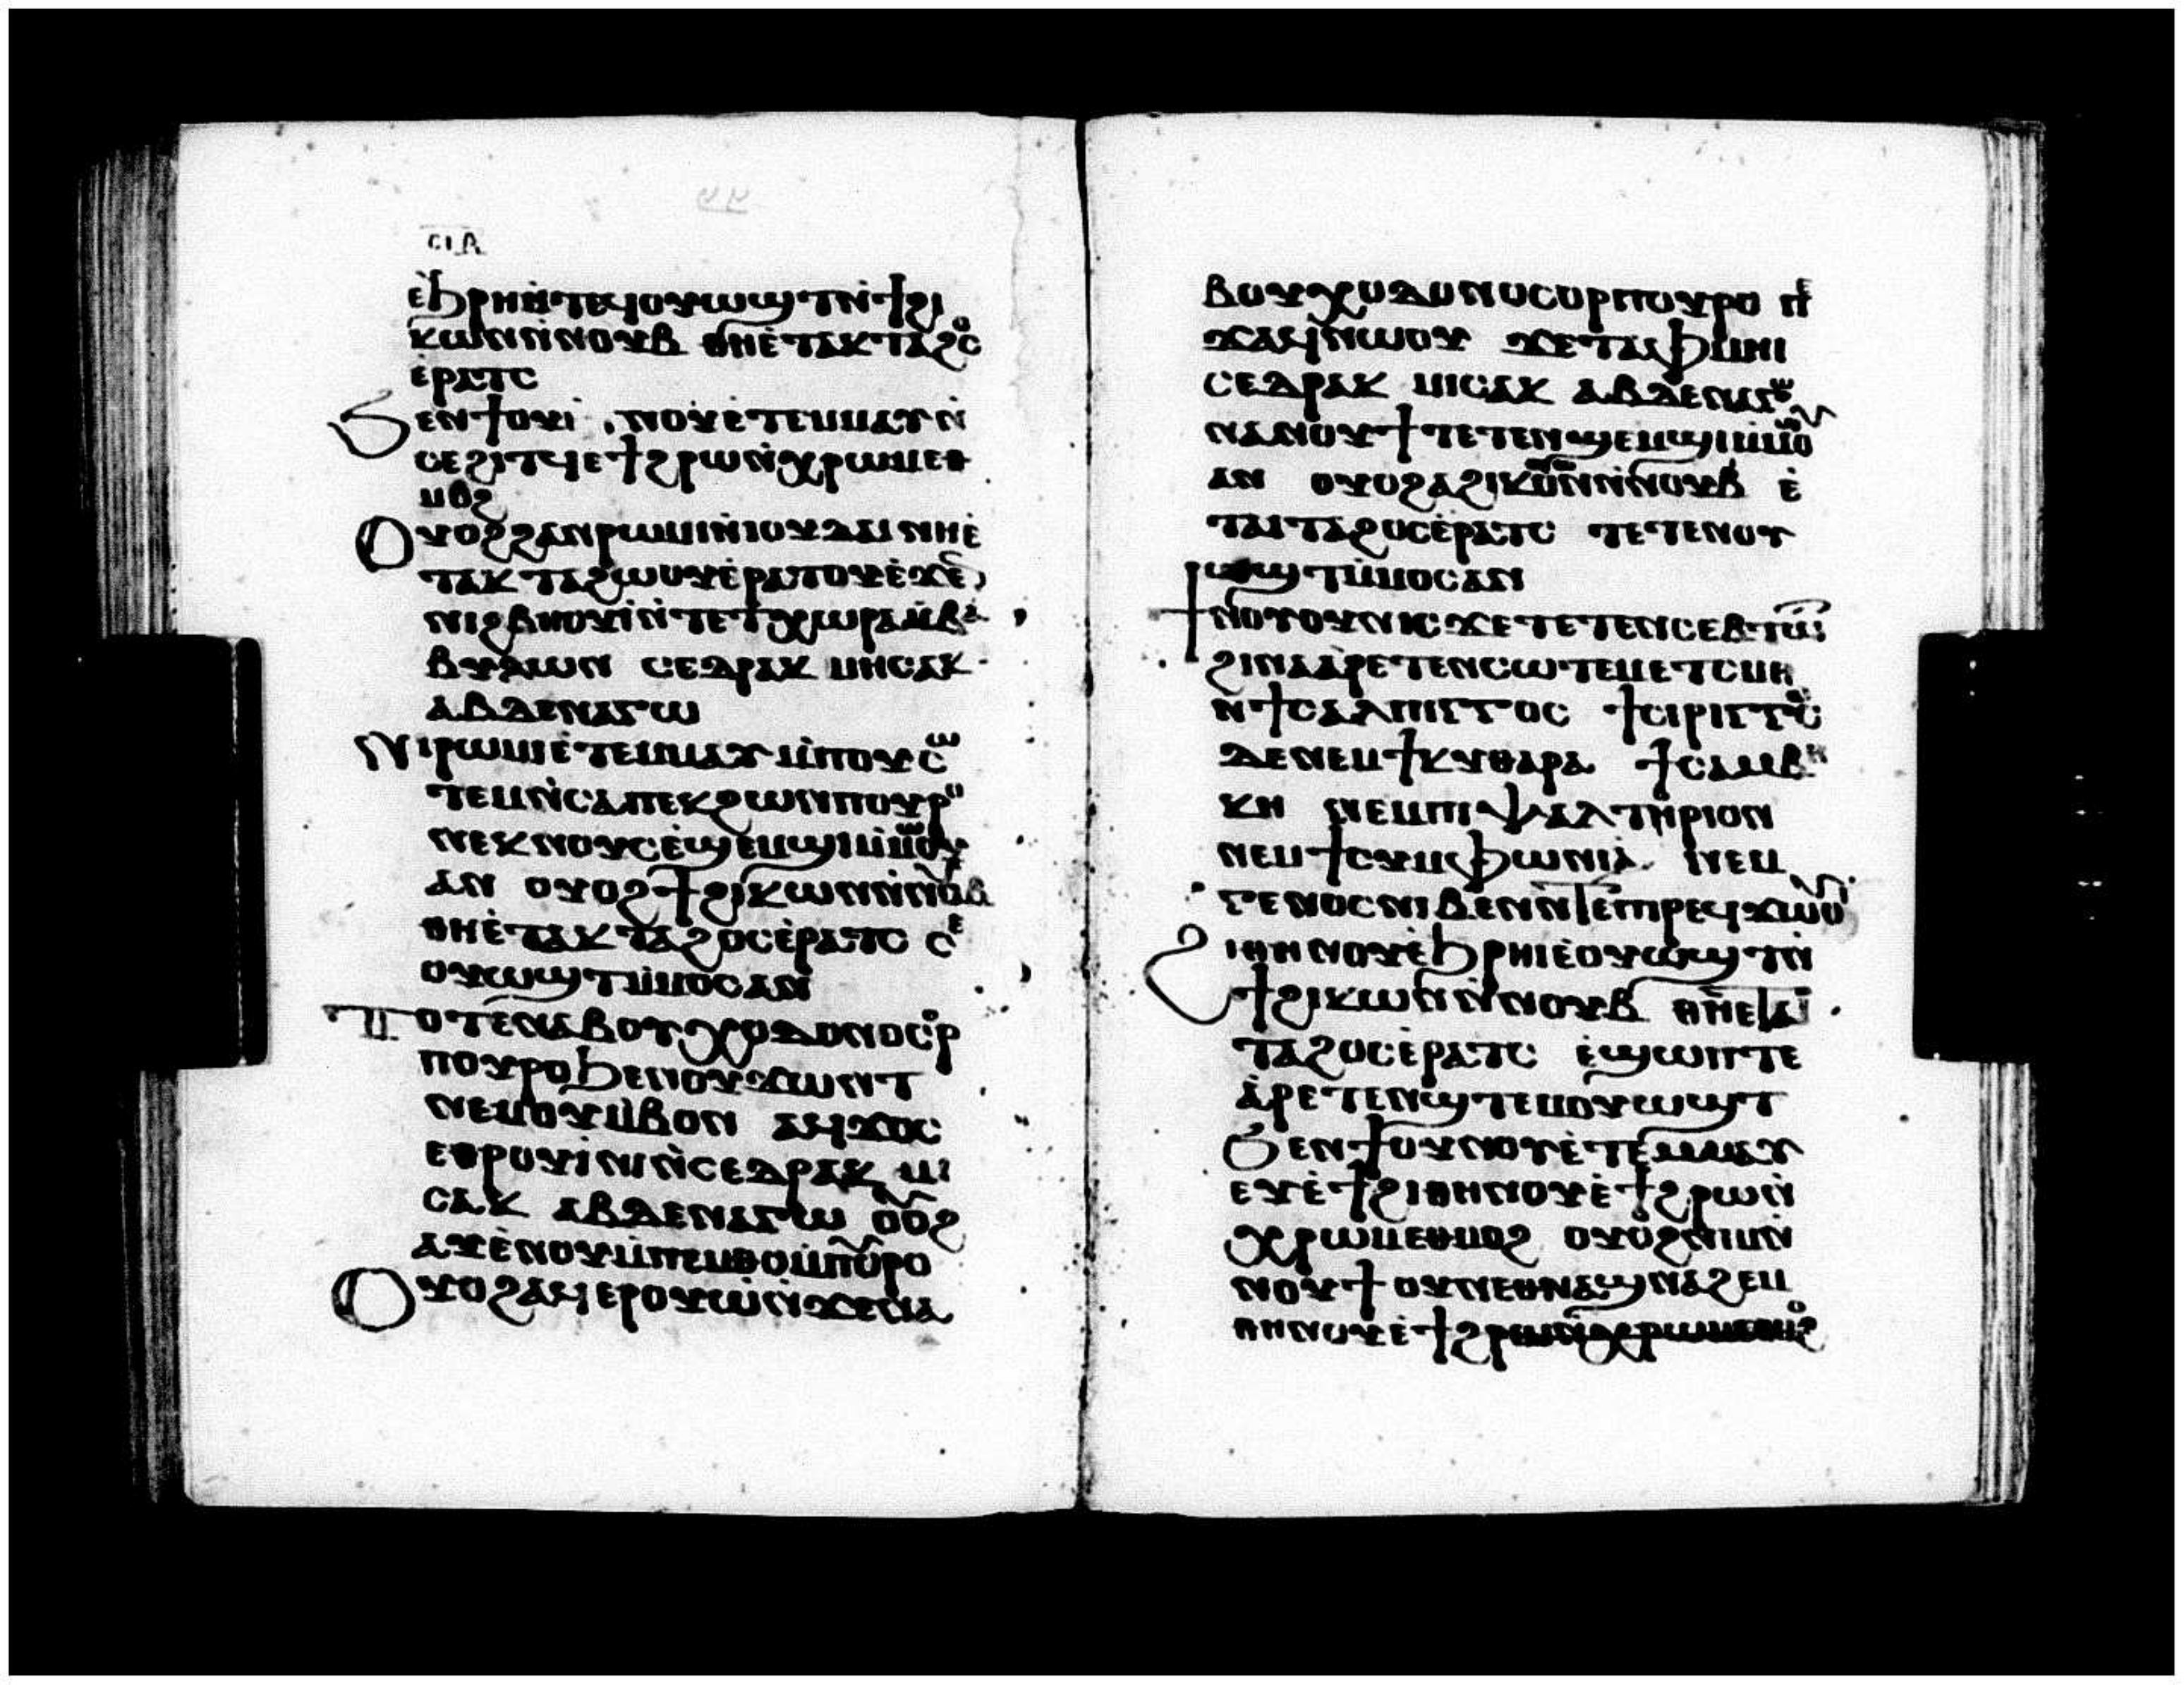 ⲥⲓⲇ
ⲉ̀ϧⲣⲏⲓⲛ̀ⲧⲉϥⲟⲩⲱϣⲧⲛ̀ϯϩⲓ
ⲕⲱⲛⲛ̀ⲛⲟⲩⲃ ⲑⲏⲉ̀ⲧⲁⲕⲧⲁϩⲟⲥ
ⲉ̀ⲣⲁⲧⲥ
ϧⲉⲛϯⲟⲩⲛⲟⲩⲉ̀ⲧⲉⲙⲙⲁⲩⲛ̀
ⲥⲉϩⲓⲧϥⲉϯϩⲣⲱⲛ̀ⲭⲣⲱⲙⲉⲑ
ⲙⲟϩ
Ⲟⲩⲟϩϩⲁⲛⲣⲱⲙⲓⲛ̀ⲓⲟⲩⲇⲁⲓ ⲛⲏⲉ̀
ⲧⲁⲕⲧⲁϩⲱⲟⲩⲉ̀ⲣⲁⲧⲟⲩⲉ̀ϫⲉⲛ
ⲛⲓϩⲃⲏⲟⲩⲓ̀ⲛ̀ⲧⲉⲧⲭⲱⲣⲁⲙ̀ⲃⲁ
ⲃⲩⲗⲱⲛ ⲥⲉⲇⲣⲁⲕ ⲙⲏⲥⲁⲕ
ⲁⲃⲇⲉⲛⲁⲅⲱ
Ⲛⲓⲣⲱⲙⲓⲉ̀ⲧⲉⲙⲙⲁⲩ ⲙ̀ⲡⲟⲩⲥⲱ
ⲧⲉⲙⲛ̀ⲥⲁⲡⲉⲕϩⲱⲛⲡⲟⲩⲣⲟ
ⲛⲉⲕⲛⲟⲩⲥⲉ̀ϣⲉⲙϣⲓⲙ̀ⲙⲱⲟⲩ
ⲁⲛ ⲟⲩⲟϩϯϩⲓⲕⲱⲛⲛ̀ⲛⲟⲩⲃ
ⲑⲏⲉ̀ⲧⲁⲕⲧⲁϩⲟⲥⲉ̀ⲣⲁⲧⲥ ⲥⲉ
ⲟⲩⲱϣⲧⲙ̀ⲙⲟⲥⲁⲛ
Ⲧⲟⲧⲉⲛⲁⲃⲟⲩⲭⲟⲇⲟⲛⲟⲥⲟⲣ
ⲡⲟⲩⲣⲟϧⲉⲛⲟⲩϫⲱⲛⲧ
ⲛⲉⲙⲟⲩⲙ̀ⲃⲟⲛ ⲁϥϫⲟⲥ
ⲉⲑⲣⲟⲩⲓ̀ⲛⲓⲛ̀ⲥⲉⲇⲣⲁⲕ ⲙⲓ
ⲥⲁⲕ ⲁⲃⲇⲉⲛⲁⲅⲱ ⲟⲩⲟϩ
ⲁⲩⲉ̀ⲛⲟⲩⲙ̀ⲡⲉⲙⲑⲟⲙ̀ⲡⲟⲩⲣⲟ
Ⲟⲩⲟϩⲁϥⲉⲣⲟⲩⲱ̀ⲛ̀ϫⲉⲛⲁ
ⲃⲟⲩⲭⲟⲇⲟⲛⲟⲥⲟⲣⲡⲟⲩⲣⲟ ⲡⲉ
ϫⲁϥⲛ̀ⲱⲟⲩ ϫⲉⲧⲁⲫⲙⲏⲓ
ⲥⲉⲇⲣⲁⲕ ⲙⲓⲥⲁⲕ ⲁⲃⲇⲉⲛⲁⲅⲱ
ⲛⲁⲛⲟⲩϯ ⲧⲉⲧⲉⲛϣⲉⲙϣⲓⲙ̀ⲙⲱⲟⲩ
ⲁⲛ ⲟⲩⲟϩⲁϩⲓⲕⲱⲛⲛ̀ⲛⲟⲩⲃ ⲉ̀
ⲧⲁⲓⲧⲁϩⲟⲥⲉ̀ⲣⲁⲧⲥ ⲧⲉⲧⲉⲛⲟⲩ
ⲱϣⲧⲙ̀ⲙⲟⲥⲁⲛ
ϯⲛⲟⲩⲟⲩⲛⲓⲥϫⲉⲧⲉⲧⲉⲛⲥⲉⲃⲧⲱⲧ
ϩⲓⲛⲁⲁ̀ⲣⲉⲧⲉⲛⲥⲱⲧⲉⲙⲉⲧⲥⲙⲏ
ⲛ̀ϯⲥⲁⲗⲡⲓⲅⲅⲟⲥ ϯⲥⲓⲣⲓⲅⲅⲟⲥ
ⲇⲉⲛⲉⲙϯⲕⲩⲑⲁⲣⲁ ϯⲥⲁⲙⲃⲏ
ⲕⲏ ⲛⲉⲙⲡⲓⲯⲁⲗⲧⲏⲣⲓⲟⲛ
ⲛⲉⲙϯⲥⲩⲙⲫⲱⲛⲓⲁ̀ ⲛⲉⲙ
ⲅⲉⲛⲟⲥⲛⲓⲃⲉⲛⲛ̀ⲧⲉⲡⲓⲣⲉϥϫⲱⲟⲩ
ϩⲓⲑⲏⲛⲟⲩⲉ̀ϧⲣⲏⲓⲉ̀ⲟⲩⲱϣⲧⲛ̀
ϯϩⲓⲕⲱⲛⲛ̀ⲛⲟⲩⲃ ⲑⲏⲉⲧⲁⲓ
ⲧⲁϩⲟⲥⲉ̀ⲣⲁⲧⲥ ⲉ̀ϣⲱⲡⲧⲉ
ⲁ̀ⲣⲉⲧⲉⲛϣⲧⲉⲙⲟⲩⲱϣⲧ
ϧⲉⲛϯⲟⲩⲛⲟⲩⲉ̀ⲧⲉⲙⲙⲁⲩ
ⲉⲩⲉ̀ϯϩⲓⲑⲏⲛⲟⲩⲉ̀ϯϩⲣⲱⲛ̀
ⲭⲣⲱⲙⲉⲑⲙⲟϩ ⲟⲩⲟϩⲛⲓⲙⲛ̀
ⲛⲟⲩϯ ⲟⲩⲛⲉⲑⲛⲁϣⲛⲁϩⲉⲙ
ⲑⲏⲛⲟⲩⲉ̀ϯϩⲣⲱⲛ̀ⲭⲣⲱⲙⲉⲑⲙⲟϩ